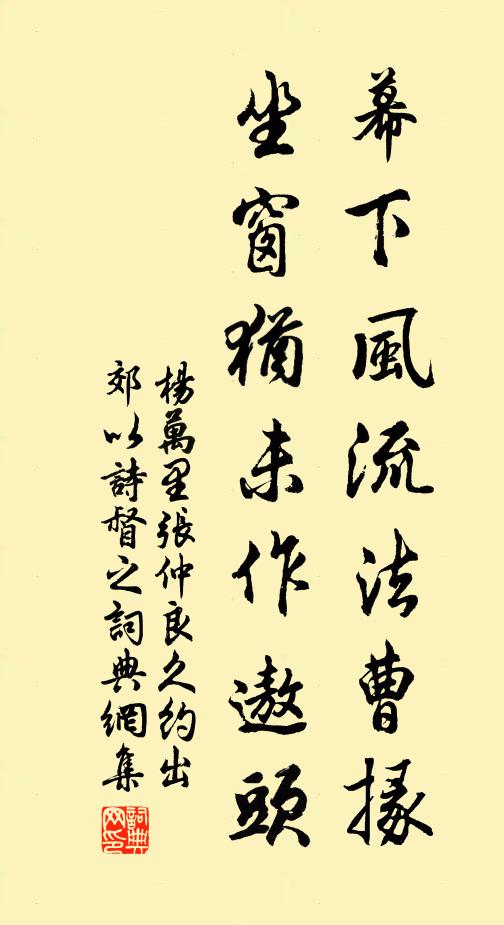 幕下風流法曹掾
坐窗猶未作遨頭
楊萬里張仲良久約出
郊以詩督之詞典網集
詞典
網印